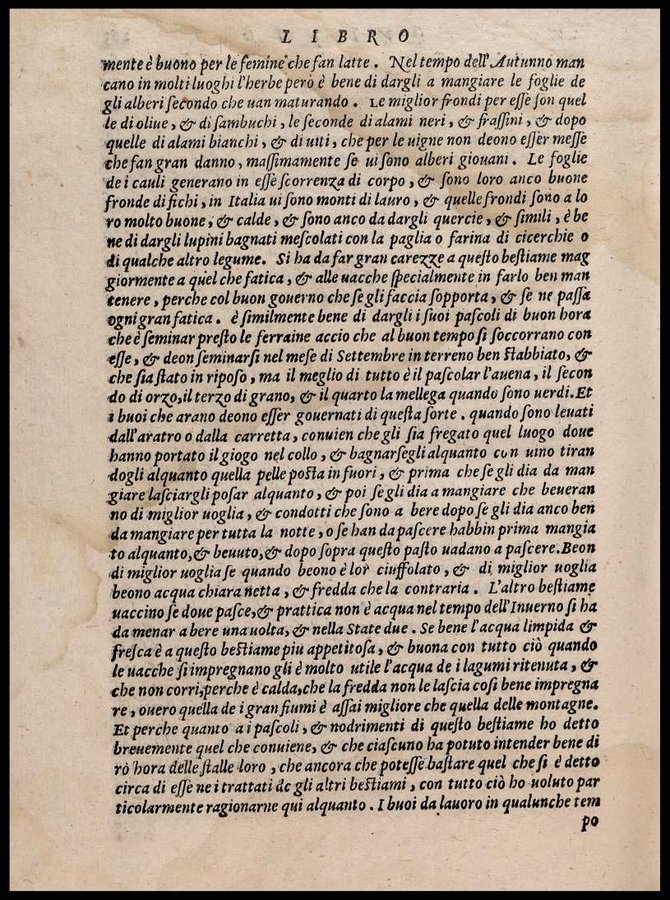 LIBRO
mente è buono per le femine che fan latte. Nel tempo dell'Autunno man
cano in molti luoghi l'herbe però è bene di dargli a mangiare le foglie de
gli alberi ſecondo che uan maturando. Le miglior frondi per eſſe ſon quel
le di oliue, & di ſambuchi, le ſeconde di alami neri, & fraſſini, & dopo
quelle di alami bianchi, & di uiti, che per le uigne non deono eſſer meſſe
che fan gran danno, maſſimamente ſe ui ſono alberi giouani. Le foglie
de i cauli generano in eſſe ſcorrenza di corpo, & ſono loro anco buone
fronde di fichi, in Italia ui ſono monti di lauro, & quelle frondi ſono a lo
ro molto buone, & calde, & ſono anco da dargli quercie, & ſimili, è be
ne di dargli lupini bagnati meſcolati con la paglia o farina di cicerchie o
di qualche altro legume. Si ha da far gran carezze a queſto beſtiame mag
giormente a quel che fatica, & alle uacche ſpecialmente in farlo ben man
tenere, perche col buon gouerno che ſe gli faccia ſopporta, & ſe ne paſſa
ogni gran fatica. è ſimilmente bene di dargli i ſuoi paſcoli di buon hora
che è ſeminar preſto le ferraine accio che al buon tempo ſi ſoccorrano con
eſſe, & deon ſeminarſi nel meſe di Settembre in terreno ben ſtabbiato, &
che ſia ſtato in ripoſo, ma il meglio di tutto è il paſcolar l'auena, il ſecon
do di orzo, il terzo di grano, & il quarto la mellega quando ſono uerdi. Et
i buoi che arano deono eſſer gouernati di queſta ſorte. quando ſono leuati
dall'aratro o dalla carretta, conuien che gli ſia fregato quel luogo doue
hanno portato il giogo nel collo, & bagnarſegli alquanto con uino tiran
dogli alquanto quella pelle poſta in fuori, & prima che ſe gli dia da man
giare laſciargli poſar alquanto, & poi ſe gli dia a mangiare che beueran
no di miglior uoglia, & condotti che ſono a bere dopo ſe gli dia anco ben
da mangiare per tutta la notte, o ſe han da paſcere habbin prima mangia
to alquanto, & beuuto, & dopo ſopra queſto paſto uadano a paſcere. Beon
di miglior uoglia ſe quando beono è lor ciuffolato, & di miglior uoglia
beono acqua chiara netta, & fredda che la contraria. L'altro beſtiame
uaccino ſe doue paſce, & prattica non è acqua nel tempo dell'Inuerno ſi ha
da menar a bere una uolta, & nella State due. Se bene l'acqua limpida &
freſca è a queſto beſtiame piu appetitoſa, & buona con tutto ciò quando
le uacche ſi impregnano gli è molto utile l'acqua de i lagumi ritenuta, &
che non corri, perche è calda, che la fredda non le laſcia coſi bene impregna
re, ouero quella de i gran fiumi è aſſai migliore che quella delle montagne.
Et perche quanto a i paſcoli, & nodrimenti di queſto beſtiame ho detto
breuemente quel che conuiene, & che ciaſcuno ha potuto intender bene di
rò hora delle ſtalle loro, che ancora che poteſſe baſtare quel che ſi è detto
circa di eſſe ne i trattati de gli altri beſtiami, con tutto ciò ho uoluto par
ticolarmente ragionarne qui alquanto. I buoi da lauoro in qualunche tem
po